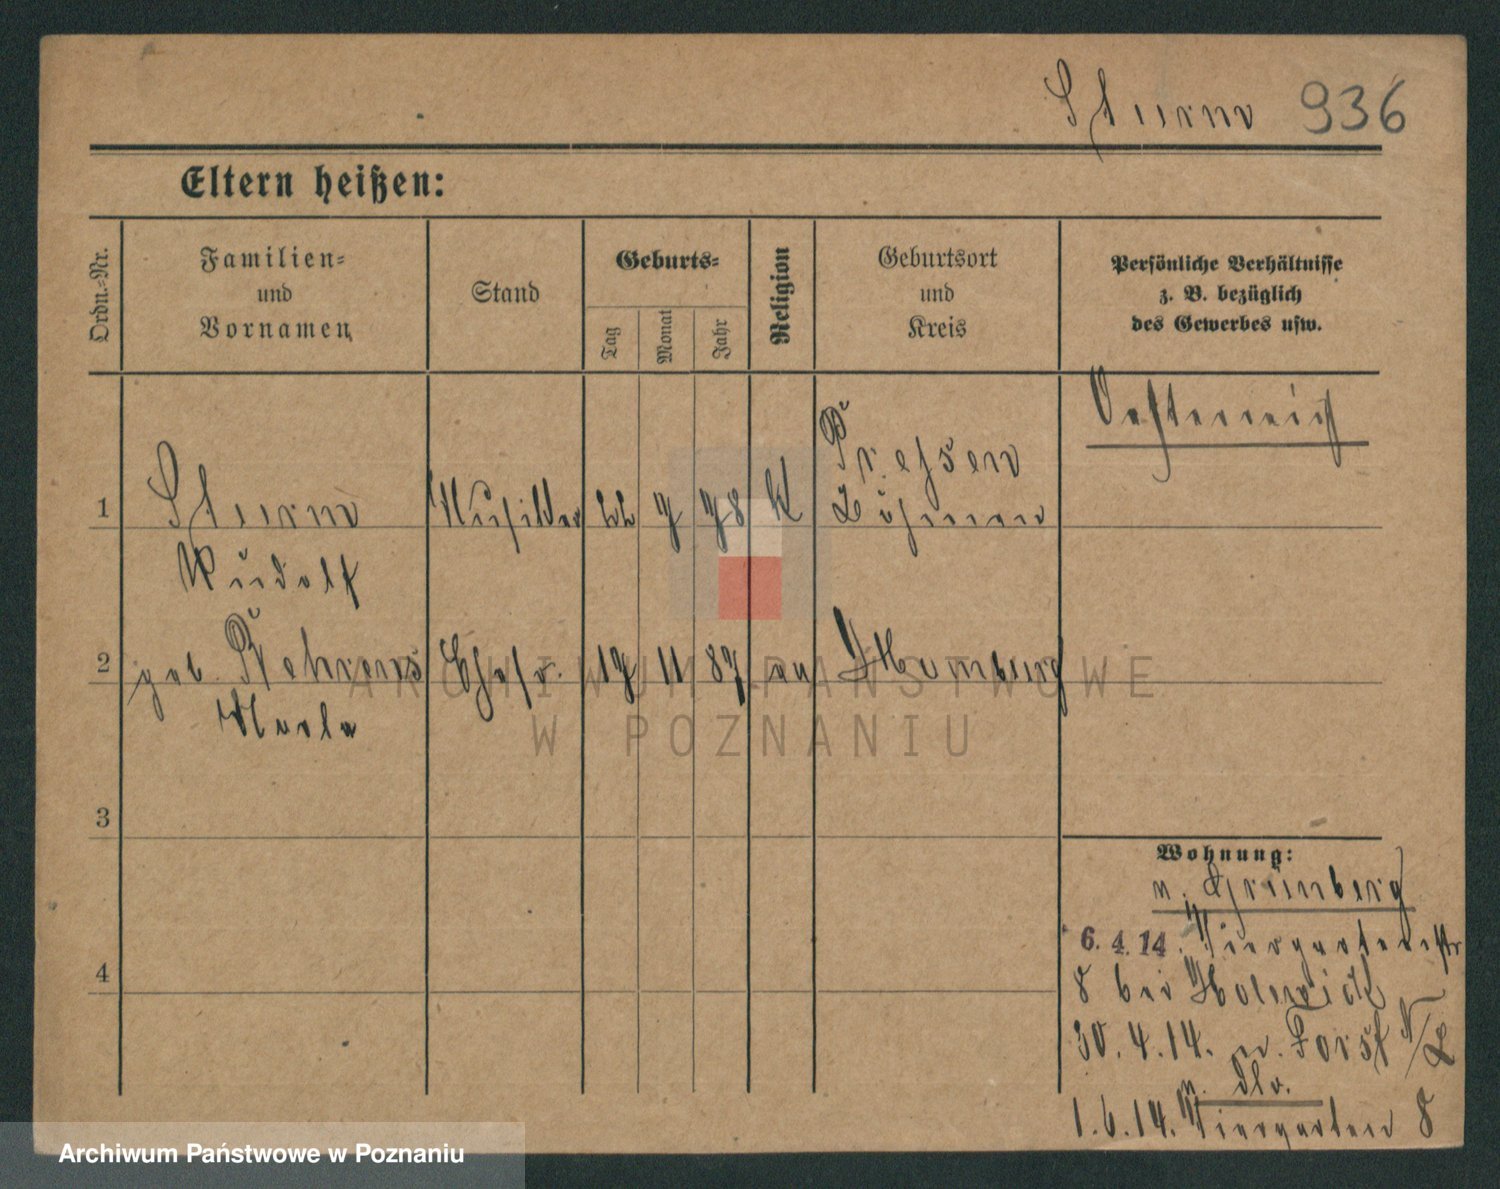 Sturm 936
Eltern heißen:
Ordn.-Nr.
Familien-
und
Vornamen
Stand
Geburts-
Tag
Monat
Jahr
Religion
Geburtsort
und
Kreis
Persönliche Verhältnisse
z. B. bezüglich
des Gewerbes usw.
Oesterreich
1 Sturm 22 7 78 K
Böhmen
Rudolf
2 geb. Behrens Ehefr. 17 11 87 ev Hamburg
3
4
Wohnung:
n. Grünberg
6.4.14. Tiergartenstr
8 bei
30.4.14. n. Forst N/L
1.6.14. Tiergarten 8
ARCHIWUM PAŃSTWOWE
W POZNANIU
Archiwum Państwowe w Poznaniu